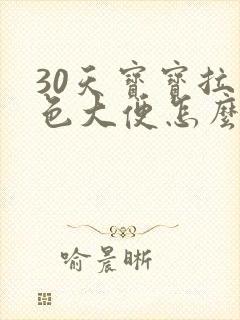 30天寶寶拉
色大便怎麼
喻晨晰